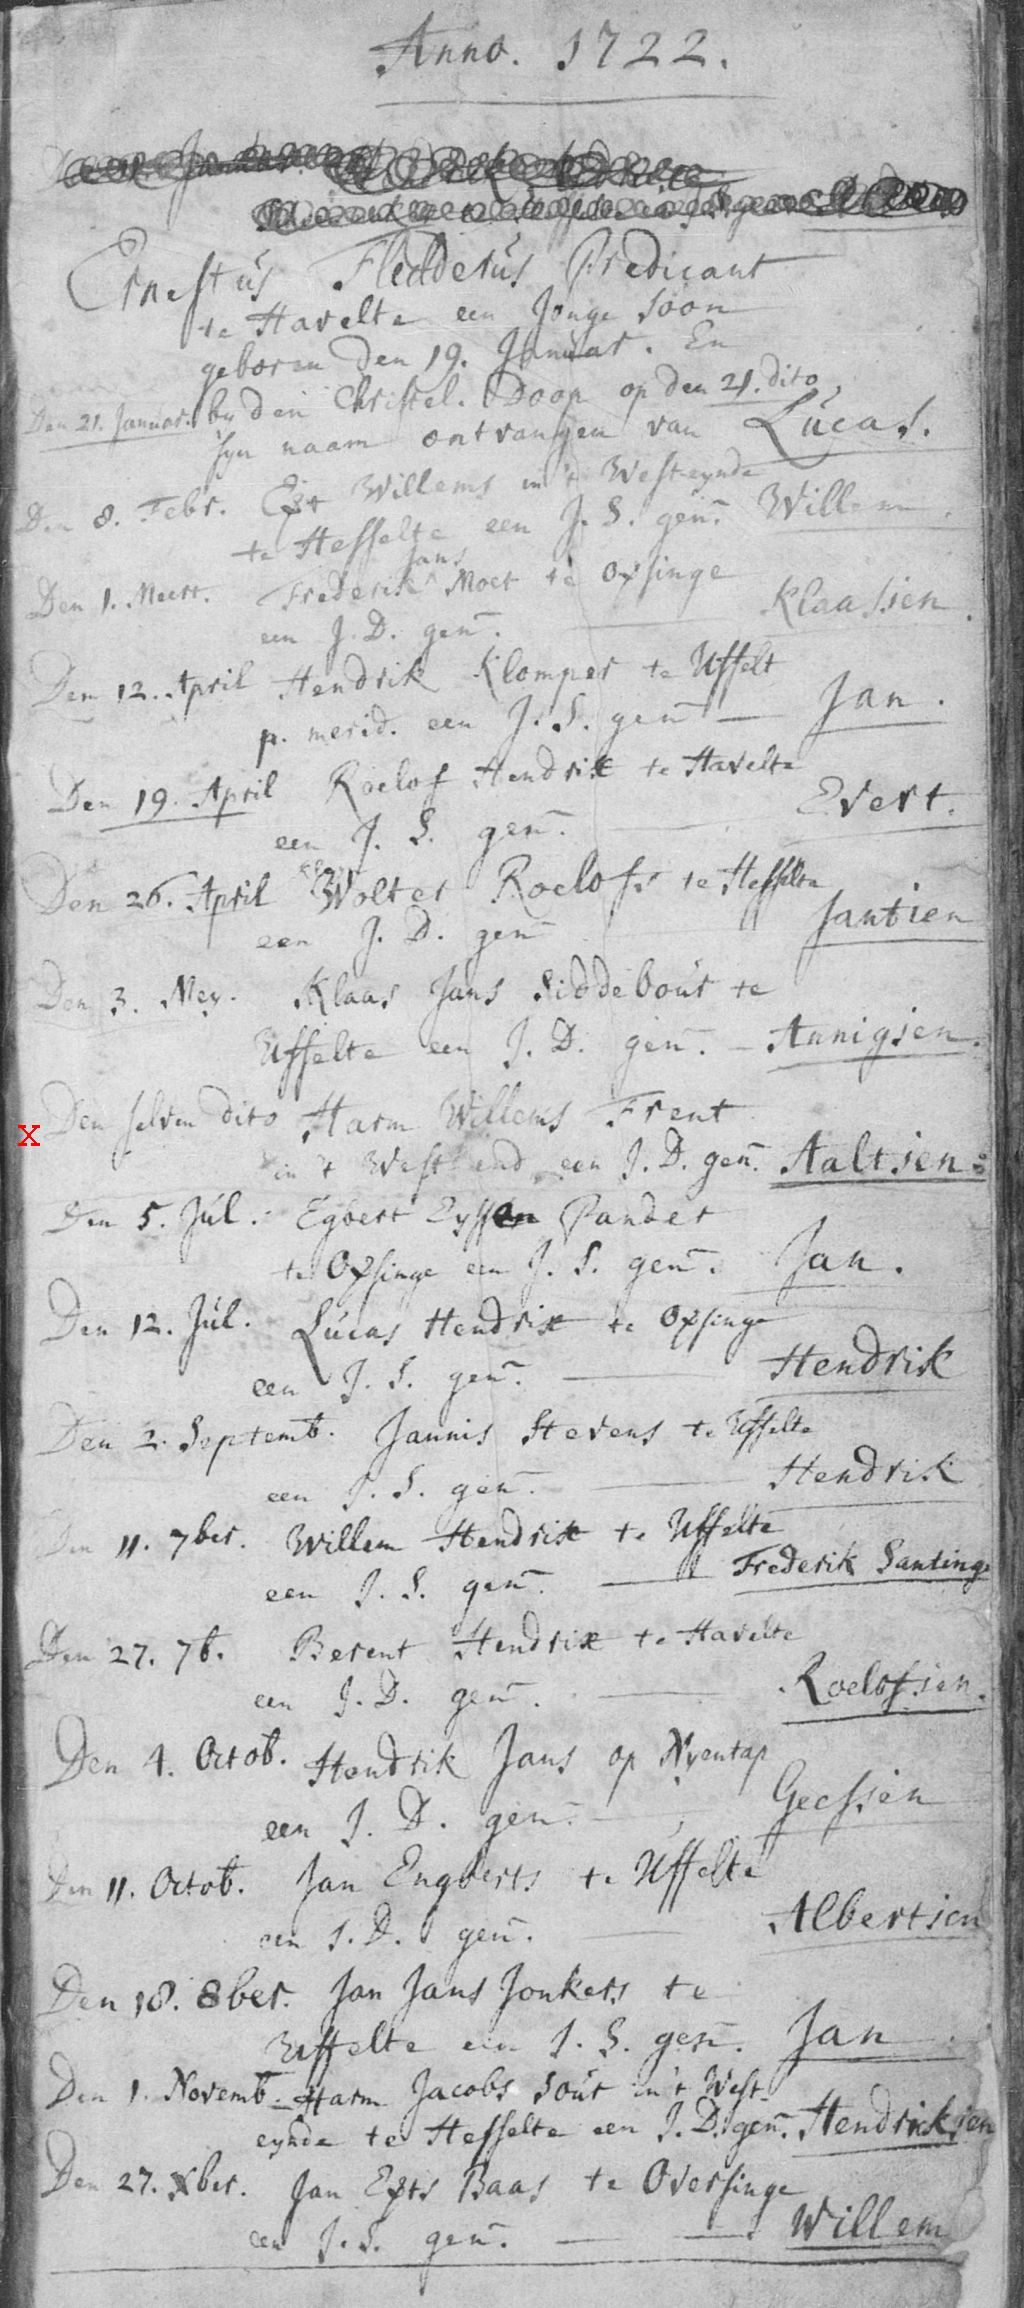 Anno. 1722.
Ernestus Fledderus Predicant
te Havelte een Jonge Soon
geboren den 19. Januar. En
Den 21. Januar. by den Christel. Doop op den 21. dito,
syn naam ontvangen van Lucas.
Den 8. Febr. Egt Willems in 't Westeynde
te Hesselte een J. S. gen. Willem.
Jans
Den 1. Meert. Frederik ^ Moet te Opsinge
een J. D. gen. Klaassien.
Den 12. April Hendrik Klomper te Uffelt
p. merid. een J. S. gen — Jan.
Den 19. April Roelof Hendrix te Havelte
een J. S. gen. — Evert.
Den 26. April Wolter Roelofs te Hesselte
een J. D. gen Jantien
Den 3. Mey. Klaas Jans Siddebour te
Uffelte een J. D. gen. — Annigjen.
X Den selven dito Harm Willems Frent
in 't Westend een J. D. gen. Aaltjen:
Den 5. Jul. Egbert Eyssen Pander
te Opsinge een J. S. gen. Jan.
Den 12. Jul. Lucas Hendrix te Opsinge
een J. S. gen. — Hendrik
Den 2. Septemb. Jannis Stevens te Uffelte
een J. S. gen. — Hendrik
Den 11. 7ber. Willem Hendrix te Uffelte
een J. S. gen. — Frederik Santinge
Den 27. 7b. Berent Hendrix te Havelte
een J. D. gen. — Roelofsien.
Den 4. Octob. Hendrik Jans op Nyentap
een J. D. gen. Geessien
Den 11. Octob. Jan Engberts te Uffelte
een J. D. gen. — Albertien
Den 18. 8ber. Jan Jans Jonkers te
Uffelte een J. S. gen. Jan
Den 1. Novemb. Harm Jacobs Sour in 't West-
eynde te Hesselte een J. D. gen. Hendrikjen
Den 27. Xber. Jan Egts Baas te Oversinge
een J. S. gen. — — Willem